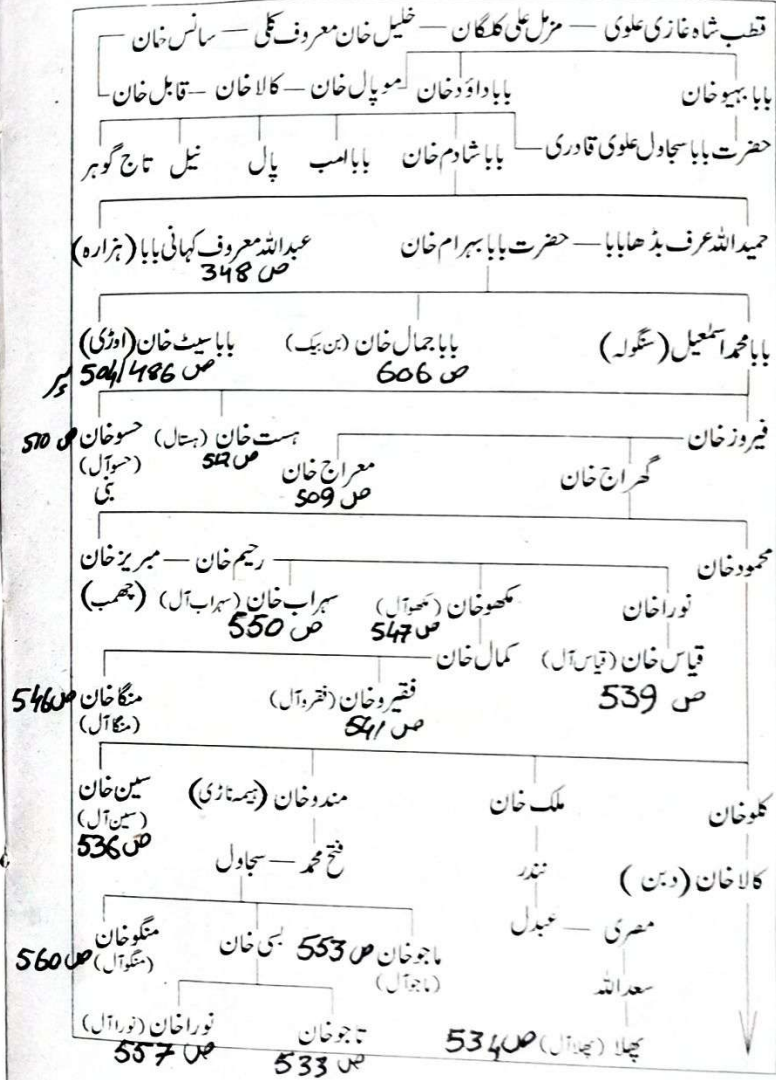 قطب شاہ غازی علوی — مزمل علی کلگان — خلیل خان معروف کلی — سانس خان
بابا بہیو خان بابا داؤد خان موپال خان — کالا خان — قابل خان
حضرت بابا سجاول علوی قادری — بابا شادم خان بابا امب پال نیل تاج گوہر
حمید اللہ عرف بڈھا بابا — حضرت بابا بہرام خان عبداللہ معروف کہانی بابا (ہزارہ)
ص 348
بابا محمد اسمٰعیل (سنگولہ) بابا جمال خان (بن بیک) بابا سیٹ خان (اوڑی)
ص 606 ص 504/486
فیروز خان ہست خان (ہستال) حسو خان ص 570
گھراج خان معراج خان ص 512 (حسوآل)
ص 509 بنی
محمود خان رحیم خان — مبریز خان
نورا خان مکھو خان (مکھوآل) سہراب خان (سہراب آل) (چھمب)
ص 547 ص 550
قیاس خان (قیاس آل) کمال خان
ص 539 فقیرو خان (فقروآل) منگا خان ص 546
ص 541 (منگا آل)
کلو خان ملک خان مندو خان (ہیمہ ناڑی) سین خان
(سین آل)
ص 536
کالا خان (دبن) نندر فتح محمد — سجاول
مصری — عبدل
ماجو خان ص 553 بسی خان منگو خان
(ماجوآل) (منگوآل) ص 560
سعد اللہ
پھلا (پھلا آل) ص 534 تاجو خان نورا خان (نورا آل)
ص 533 ص 557